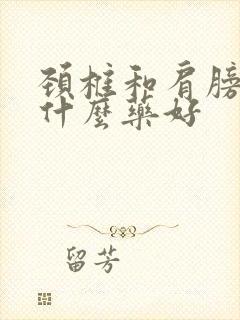 颈椎和肩膀
什麼藥好
留芳